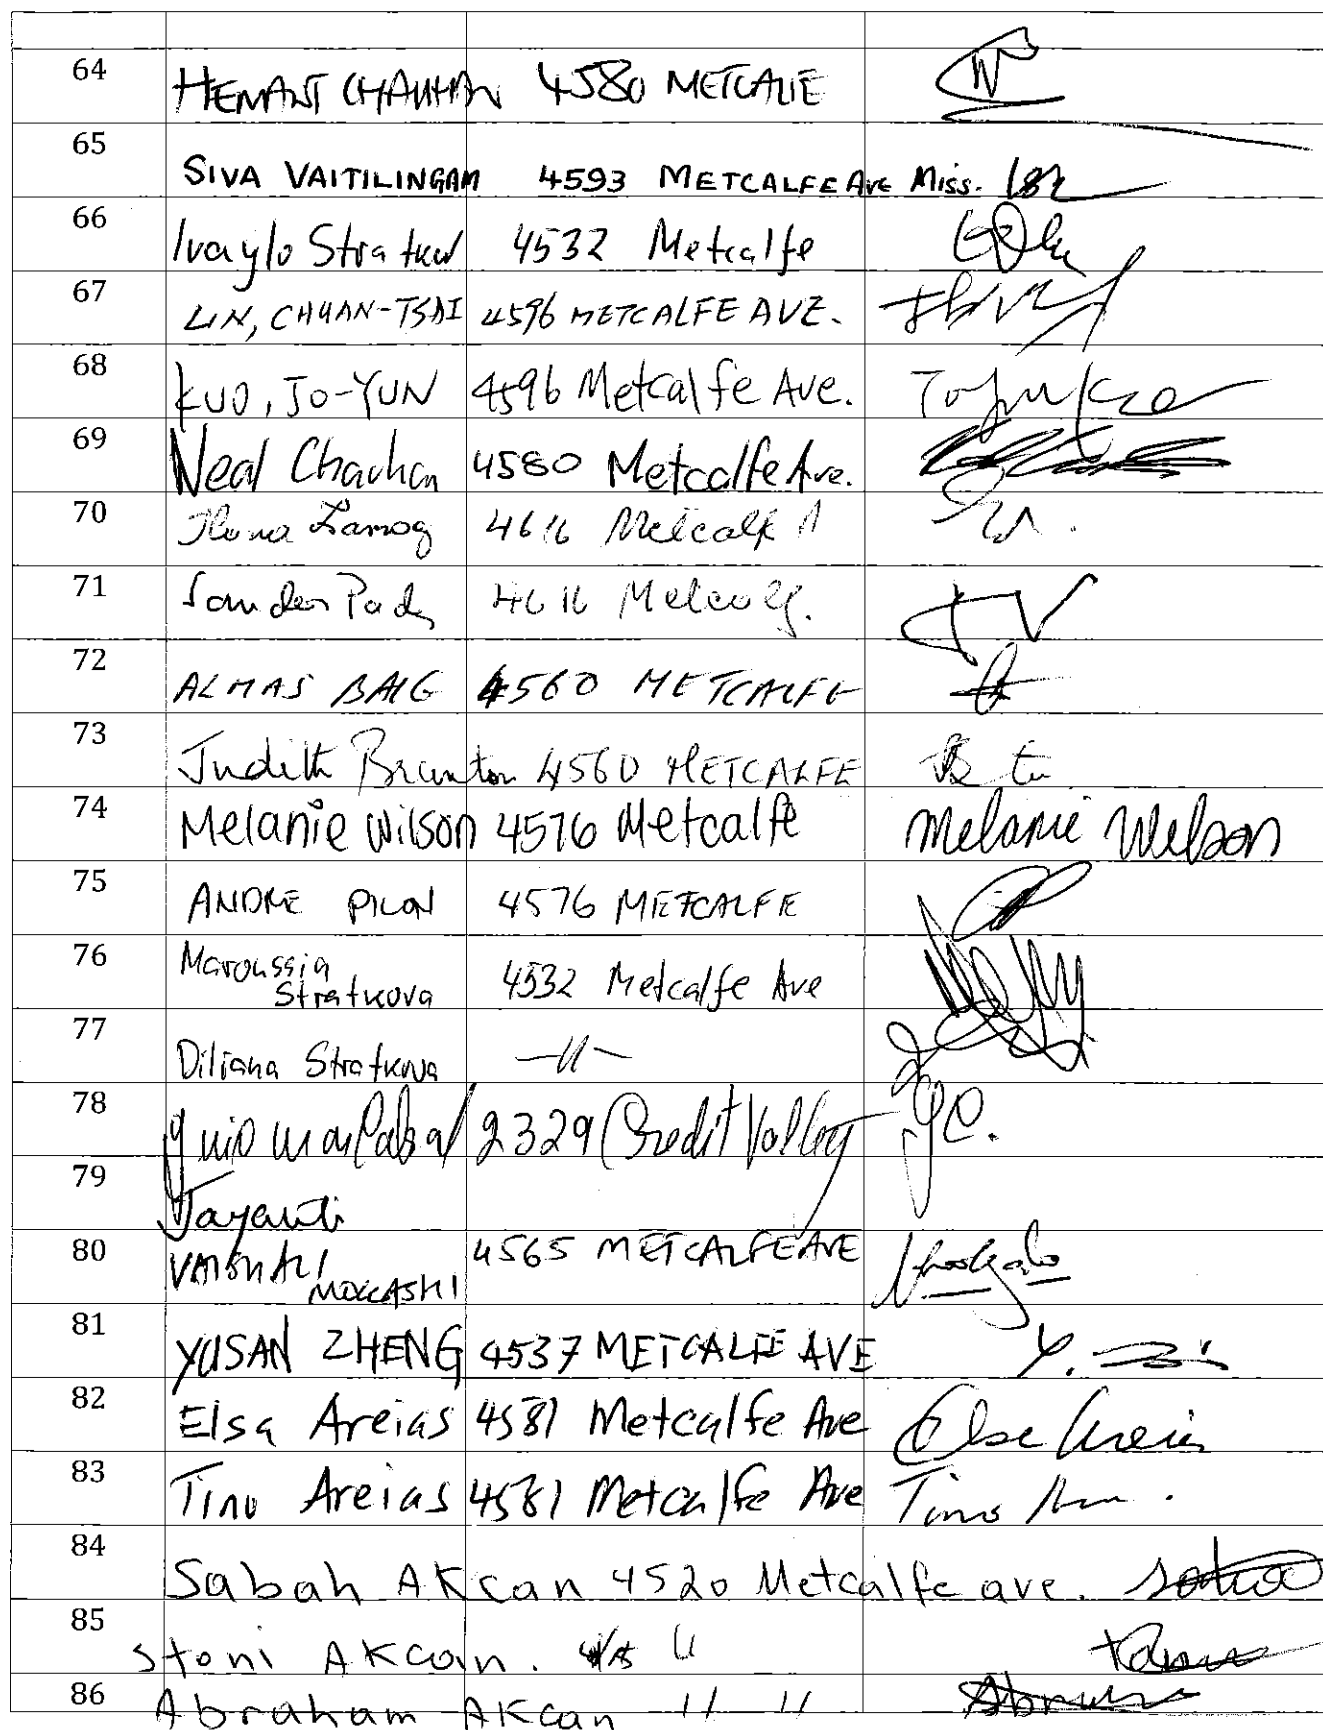 64 HEMANT CHAUHAN 4580 METCALFE
65 SIVA VAITILINGAM 4593 METCALFE Ave Miss.
66 Ivaylo Stratkov 4532 Metcalfe
67 LIN, CHUAN-TSAI 4596 METCALFE AVE.
68 KUO, JO-YUN 4596 Metcalfe Ave.
69 Neal Chauhan 4580 Metcalfe Ave.
70 4616 Metcalf
71 4616
72 ALMAS BAIG 4560 METCALFE
73 Judith Brunton 4560 METCALFE
74 Melanie Wilson 4576 Metcalfe Melanie Wilson
75 ANDRE PILON 4576 METCALFE
76 Maroussia
Stratkova 4532 Metcalfe Ave
77 Diliana Stratkova —11—
78 2329 Credit Valley JC.
79 Jayanti
80 VAISHALI
MOKASHI 4565 METCALFE AVE
81 YUSAN ZHENG 4537 METCALFE AVE
82 Elsa Areias 4581 Metcalfe Ave Elsa Areias
83 Tino Areias 4581 Metcalfe Ave Tino
84 Sabah AKcan 4520 Metcalfe ave.
85 Stoni AKcan. 11
86 Abraham AKcan 11 11